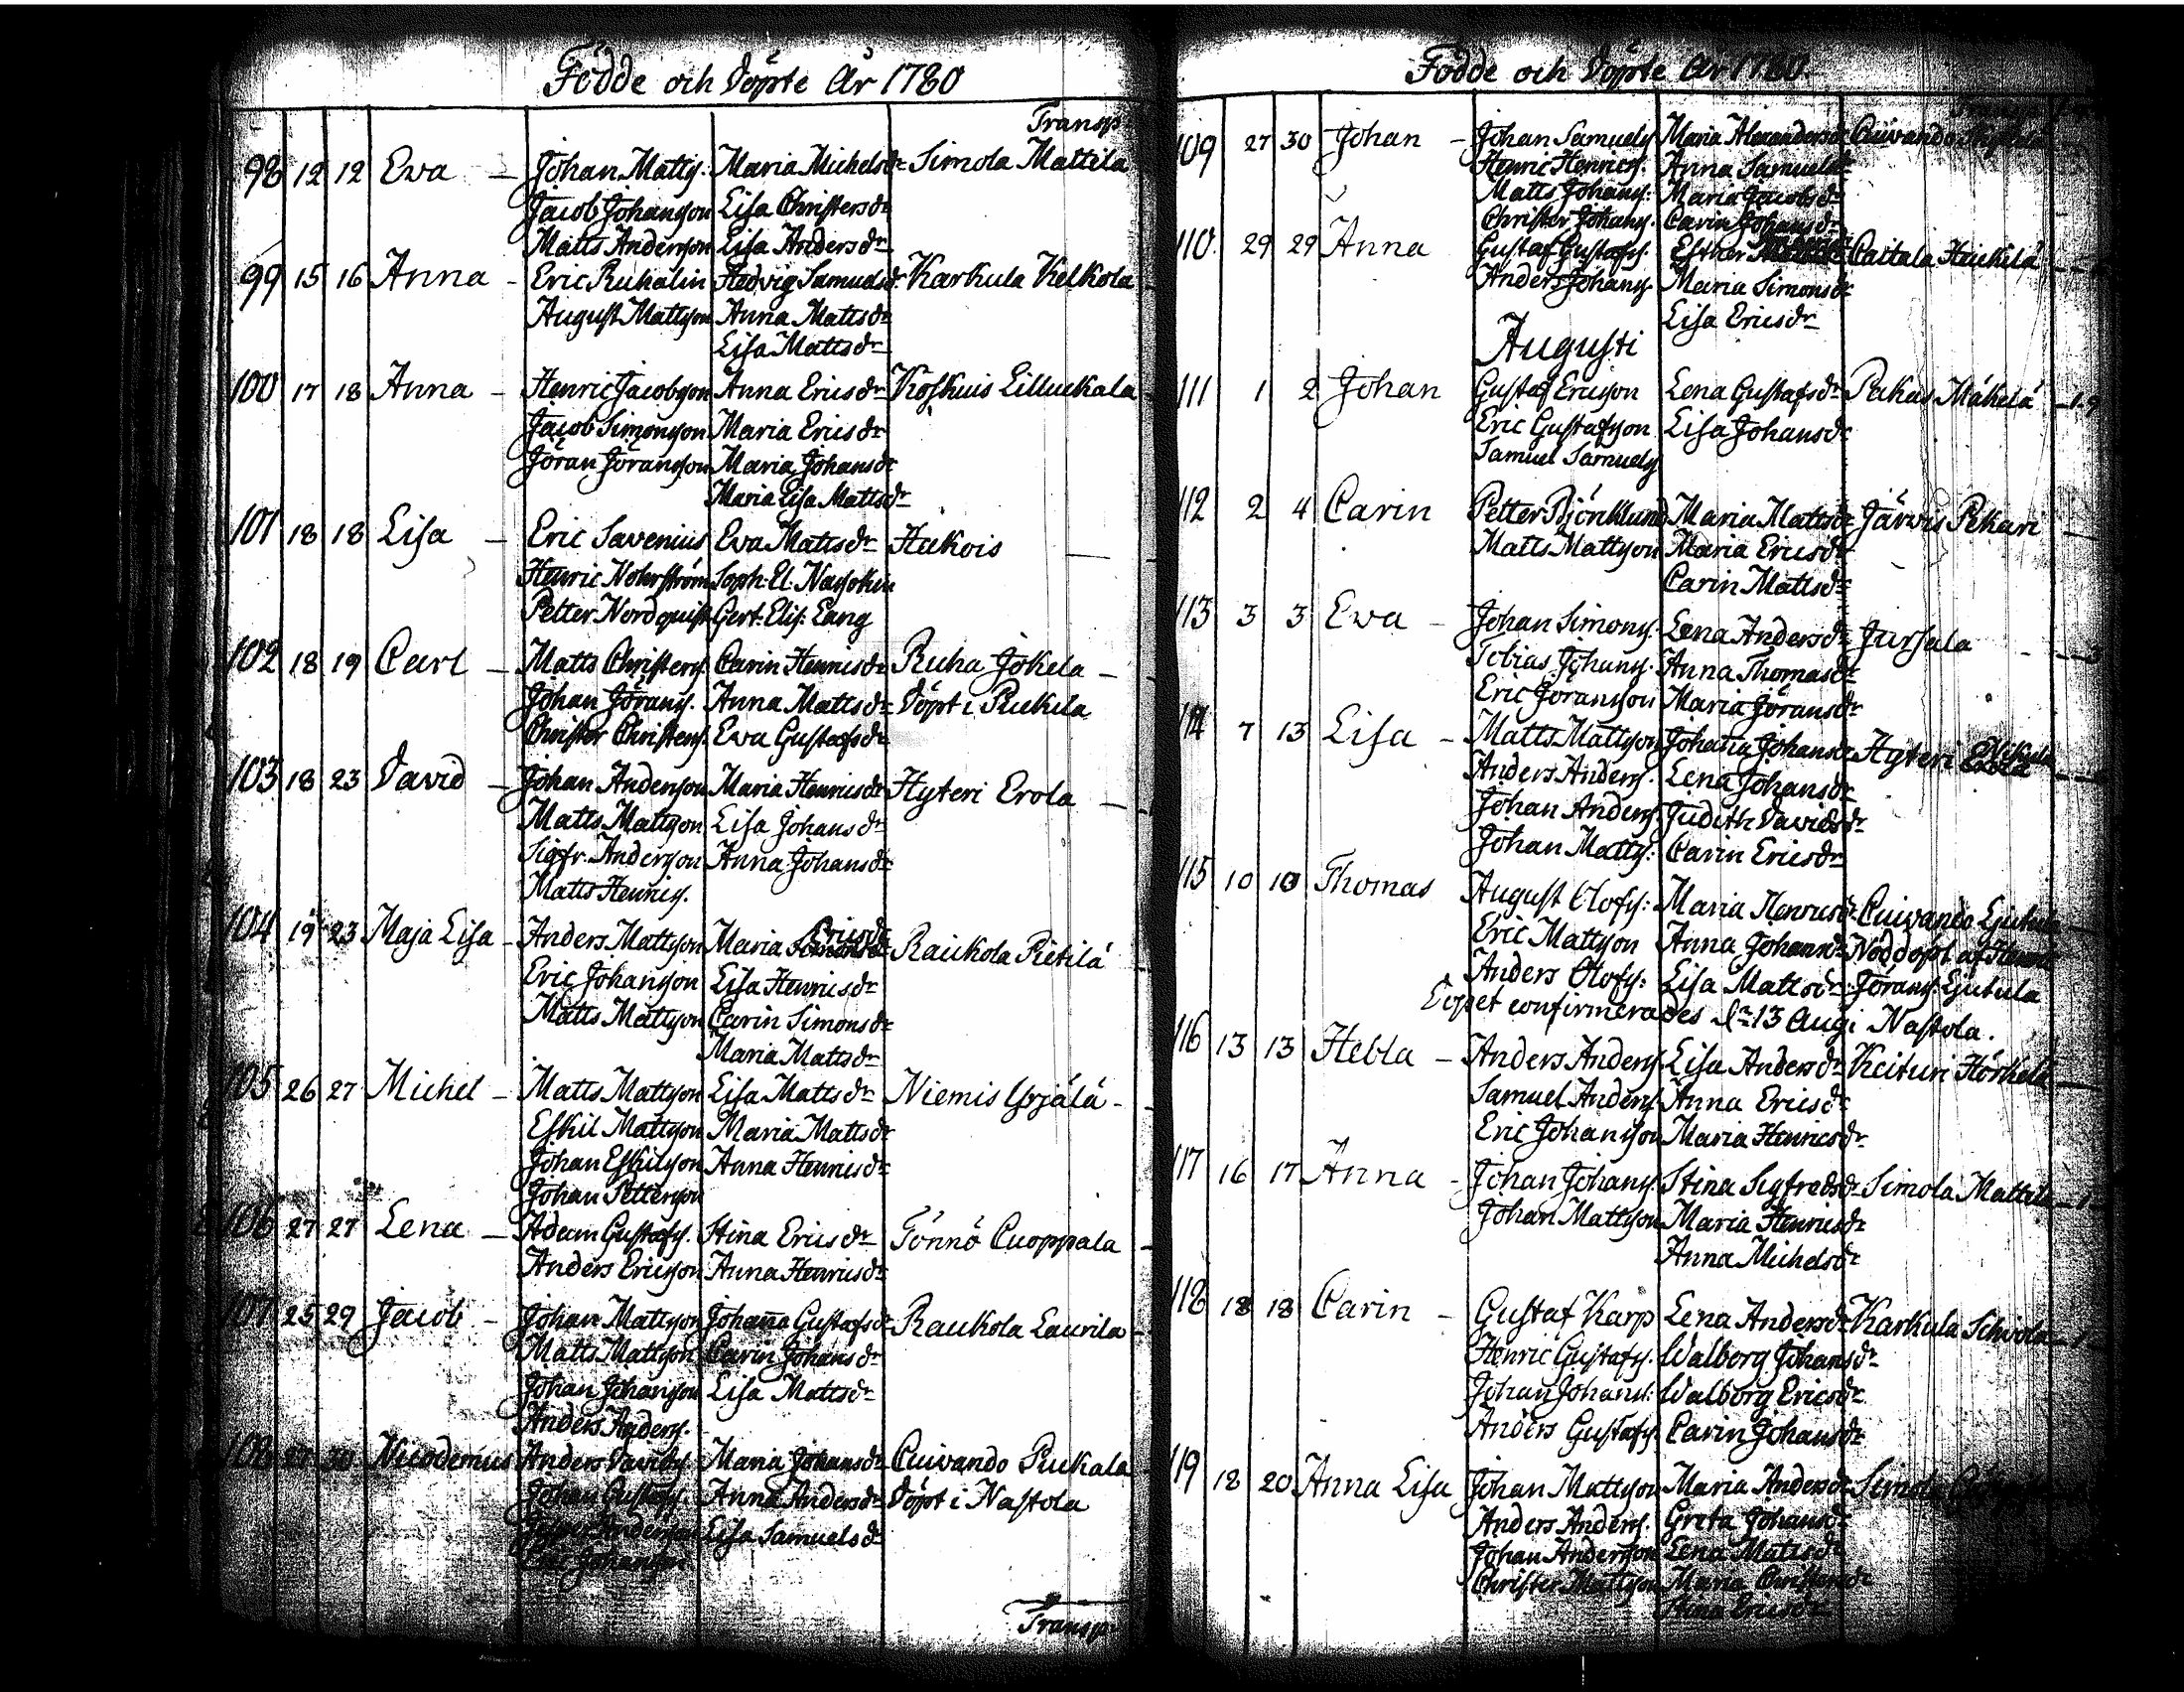 Födde och Döpte År 1780
Transp
98 12 12 Eva — Johan Matts. Maria Michelsdr Simola Mattila
Jacob Johansson Lisa Christersdr
Matts Andersson Lisa Andersdr
99 15 16 Anna - Eric Ruhalin Hedvig Samuelsdr Karkula Kelkola
August Mattsson Anna Mattsdr
Lisa Mattsdr
100 17 18 Anna - Henric Jacobsson Anna Ericsdr Koskuis Lilluckala
Jacob Simonsson Maria Ericsdr
Jöran Jöransson Maria Johansdr
Maria Lisa Mattsdr
101 18 18 Lisa — Eric Savenius Eva Mattsdr Hukois
Henric Nohrström Soph: El. Nassokin
Petter Nordquist Gert: Elis: Lang
102 18 19 Carl — Matts Christers. Carin Henricsdr Ruha Jokela
Johan Jörans. Anna Mattsdr Döpt i Puckila
Christer Christers. Eva Gustafsdr
103 18 23 David — Johan Andersson Maria Henricsdr Hyteri Erola
Matts Mattsson Lisa Johansdr
Sigfr. Andersson Anna Johansdr
Matts Henrics.
104 19 23 Maja Lisa - Anders Mattsson Maria Ericsdr Raukola Pietilä
Eric Johansson Lisa Henricsdr
Matts Mattsson Carin Simonsdr
Maria Mattsdr
105 26 27 Michel - Matts Mattsson Lisa Mattsdr Niemis Yrjälä
Eskil Mattsson Maria Mattsdr
Johan Eskilsson Anna Henricsdr
Johan Pettersson
106 27 27 Lena — Adam Gustafs. Stina Ericsdr Tönnö Cuoppala
Anders Ericsson Anna Henricsdr
107 25 29 Jacob - Johan Mattsson Johanna Gustafsdr Raukola Laurila
Matts Mattsson Carin Johansdr
Johan Johansson Lisa Mattsdr
Anders Anders.
108 27 30 Nicodemus Anders Davids. Maria Johansdr Cuivando Puckala
Johan Gustafs. Anna Andersdr Döpt i Nastola
Andersson Lisa Samuelsdr
Eric Johansson
Transp.
Födde och Döpte År 1780.
109 27 30 Johan - Johan Samuels. Maria Alexandersdr Cuivando
Henric Henrics. Anna Samuelsdr
Matts Johans: Maria Jacobsdr
Christer Johans. Carin Johansdr
110. 29 29 Anna Gustaf Gustafs. Esther Caitala Heickilä
Anders Johans. Maria Simonsdr
Lisa Ericsdr
Augusti
111 1 2 Johan Gustaf Ericsson Lena Gustafsdr Pakas Mäkelä
Eric Gustafsson Lisa Johansdr
Samuel Samuels.
112 2 4 Carin Petter Björklund Maria Mattsdr Järvis Pekari
Matts Mattsson Maria Ericsdr
Carin Mattsdr
113 3 3 Eva - Johan Simons. Lena Andersdr Jursala
Tobias Johans. Anna Thomasdr
Eric Jöransson Maria Jöransdr
114 7 13 Lisa - Matts Mattsson Johanna Johansdr Hyteri
Anders Anders. Lena Johansdr
Johan Anders. Judith Davidsdr
Johan Matts: Carin Ericsdr
115 10 10 Thomas August Olofs: Maria Henricsdr Cuivando Ljutula
Eric Mattsson Anna Johansdr Nöddöpt af
Anders Olofs: Lisa Mattsdr Jörans: Ljutula
Dopet confirmerades dn 13 Aug i Nastola.
116 13 13 Hebla - Anders Anders. Lisa Andersdr Keituri Hörkelä
Samuel Anders. Anna Ericsdr
Eric Johansson Maria Henricsdr
117 16 17 Anna - Johan Johans. Stina Sigfredsdr Simola Mattila
Johan Mattsson Maria Henricsdr
Anna Michelsdr
118 18 18 Carin - Gustaf Karp Lena Andersdr Karkula Schvola
Henric Gustafs. Walborg Johansdr
Johan Johans: Walborg Ericsdr
Anders Gustafs. Carin Johansdr
119 18 20 Anna Lisa Johan Mattsson Maria Andersdr Simola
Anders Anders. Greta Johansdr
Johan Andersson Lena Mattsdr
Christer Mattsson Maria Christersdr
Stina Ericsdr